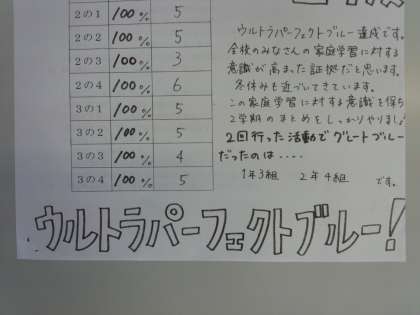 2の1 100% 5
2の2 100% 5
2の3 100% 3
2の4 100% 6
3の1 100% 5
3の2 100% 5
3の3 100% 4
3の4 100% 5
ウルトラパーフェクトブルー達成です。
全校のみなさんの家庭学習に対する
意識が高まった証拠だと思います。
冬休みも近づいてきています。
この家庭学習に対する意識を保ち
2学期のまとめをしっかりやりましょ
2回行った活動でグレートブルー
だったのは・・・・
1年3組 2年4組 です。
ウルトラパーフェクトブルー!